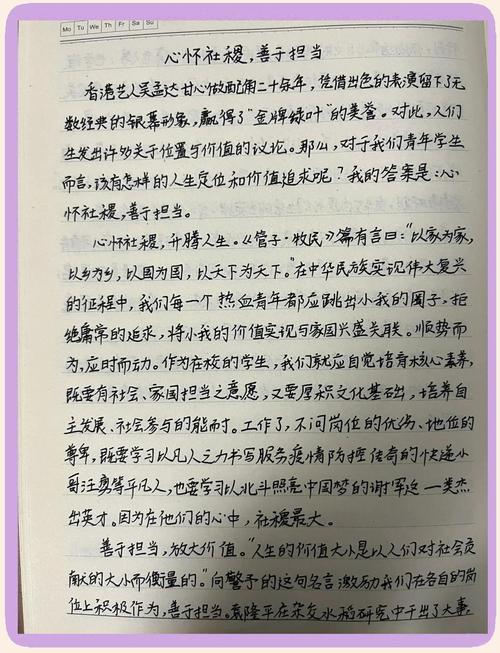 Mo Tu We Th Fr Sa Su
心怀社稷,善于担当
香港艺人吴孟达甘心做配角二十余年,凭借出色的表演留下了无
数经典的银幕形象,赢得了“金牌绿叶”的美誉。对此,人们
生发出许多关于位置与价值的议论。那么,对于我们青年学生
而言,该有怎样的人生定位和价值追求呢?我的答案是:心
怀社稷,善于担当。
心怀社稷,升腾人生。《管子·牧民》篇有言曰:“以家为家,
以乡为乡,以国为国,以天下为天下。”在中华民族实现伟大复兴
的征程中,我们每一个热血青年都应跳出小我的圈子,拒
绝庸常的追求,将小我的价值实现与家国兴盛关联。顺势而
为,应时而动。作为在校的学生,我们就应自觉培育核心素养,
既要有社会、家国担当之意愿,又要厚积文化基础,培养自
主发展、社会参与的能耐。工作了,不问岗位的优劣、地位的
尊卑,既要学习以凡人之力书写服务疫情防控传奇的快递小
哥汪勇等平凡人,也要学习以北斗照亮中国梦的谢军这一类杰
出英才。因为在他们的心中,社稷最大。
善于担当,放大价值。“人生的价值大小是以人们对社会贡
献的大小而衡量的。”向警予的这句名言激励我们在各自的岗
位上积极作为,善于担当。袁隆平在杂交水稻研究中干出了大事,